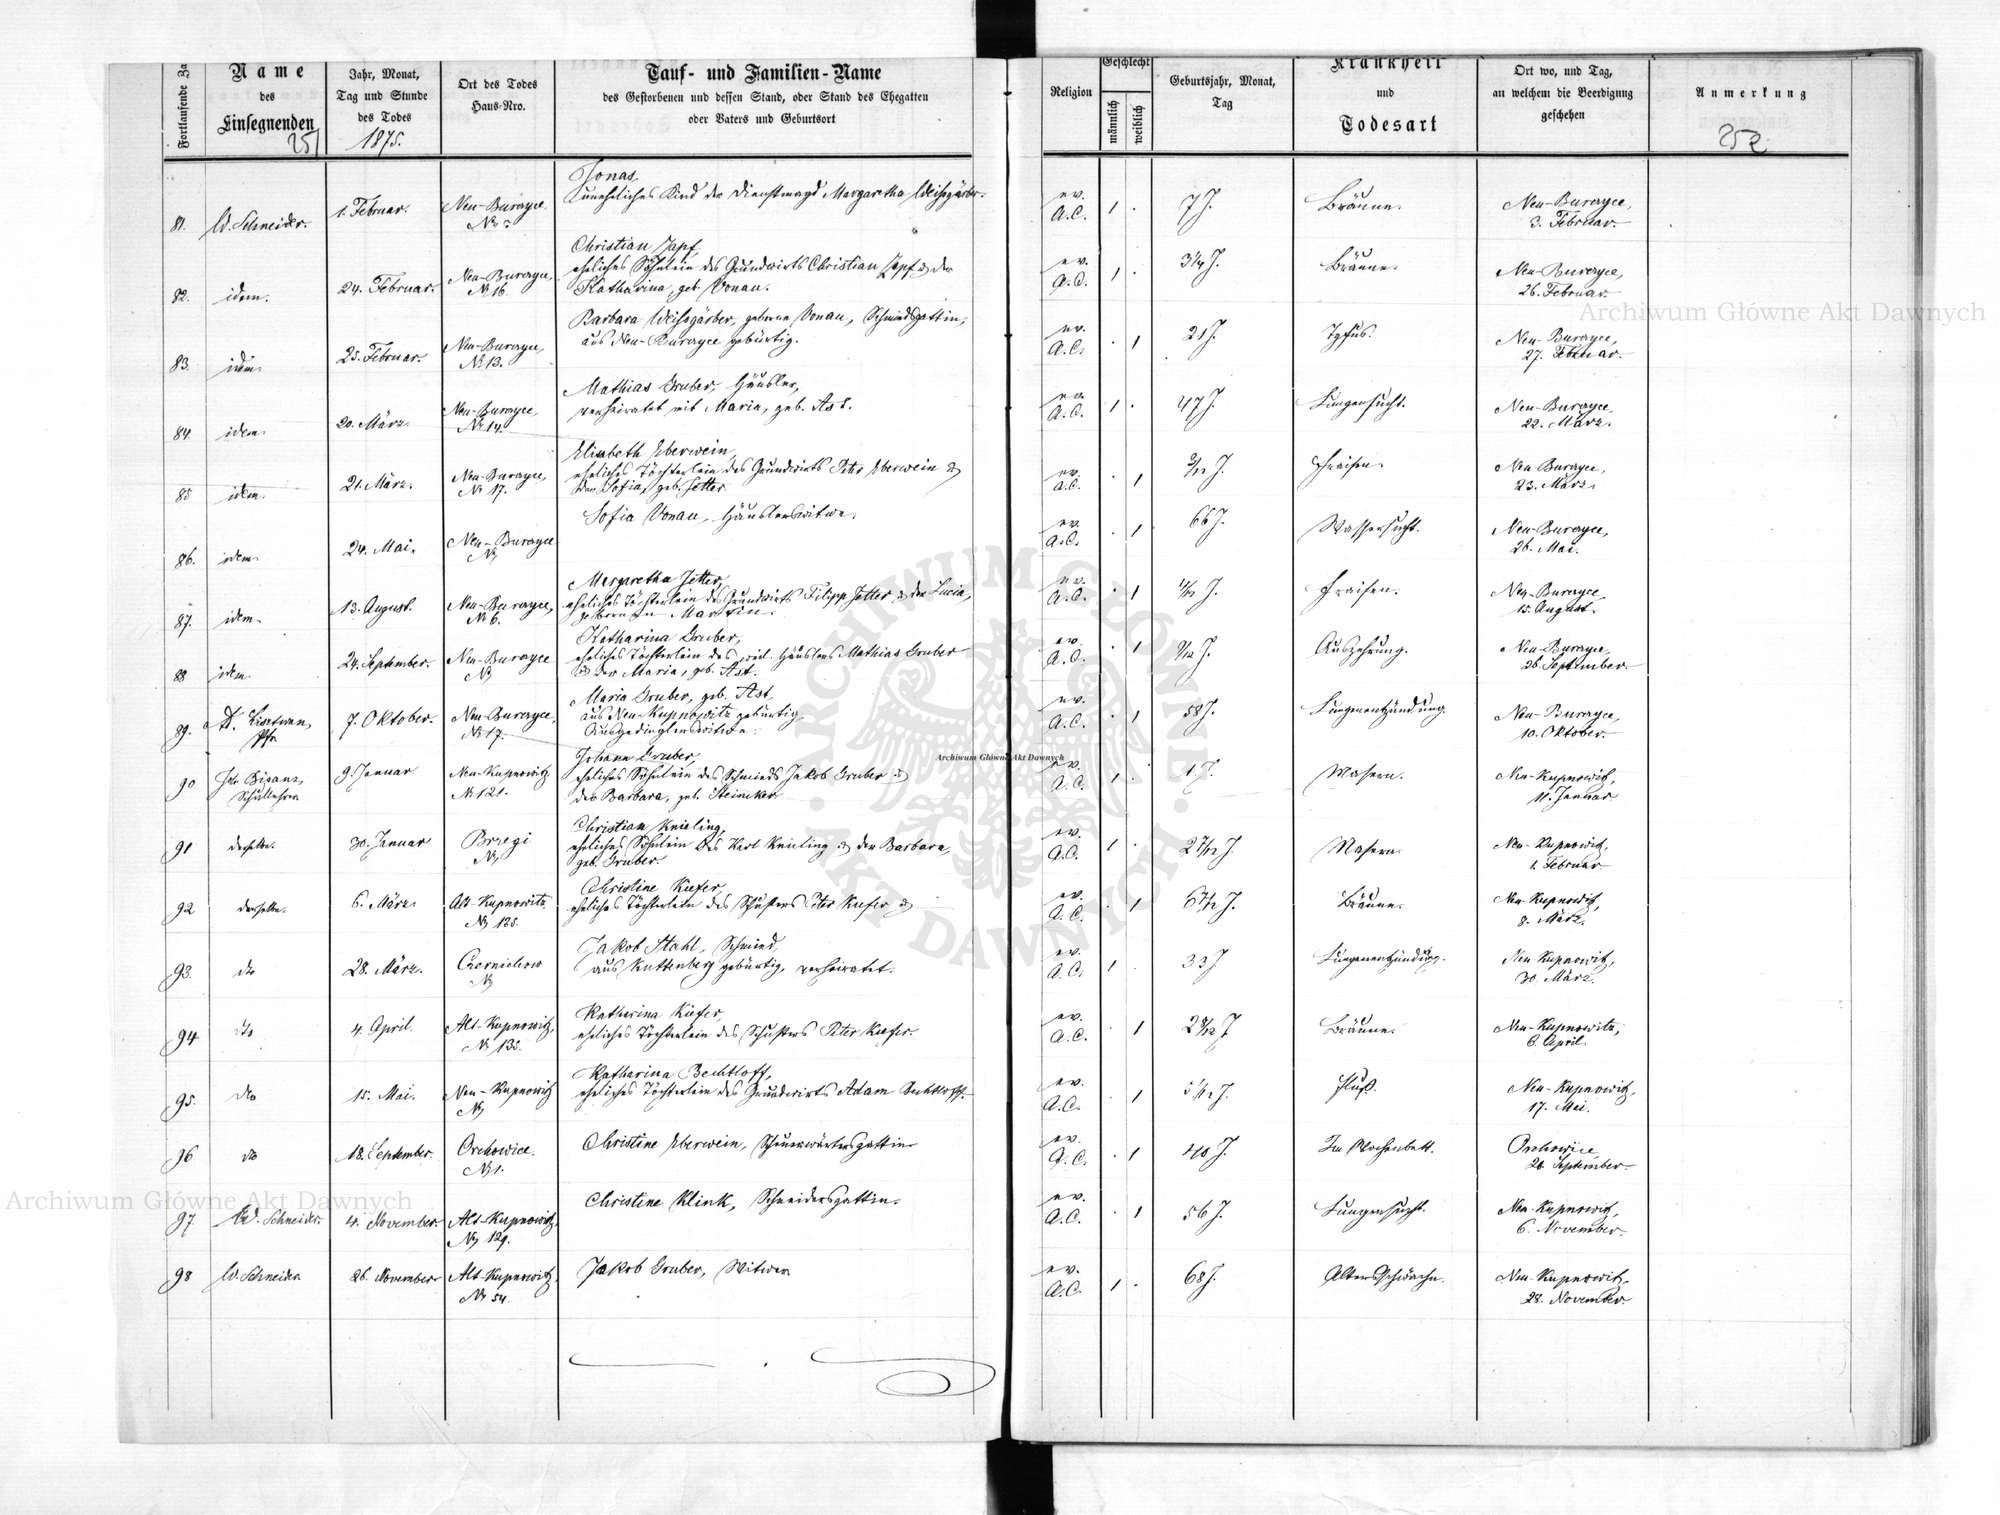 Fortlaufende Za
Name
des
Einsegnenden
251
Jahr, Monat,
Tag und Stunde
des Todes
1875.
Ort des Todes
Haus-Nro.
Tauf- und Familien-Name
des Gestorbenen und dessen Stand, oder Stand des Ehegatten
oder Vaters und Geburtsort
Religion
Geschlecht
männlich
weiblich
Geburtsjahr, Monat,
Tag
Krankheit
und
Todesart
Ort wo, und Tag,
an welchem die Beerdigung
geschehen
Anmerkung
252
Jonas,
uneheliches Kind der Dienstmagd Margaretha Weißgärber.
81. W. Schneider. 1. Februar. Neu-Burczyce ev. A.C. 1 . 7 J. Bräune. Neu-Burczyce,
3. Februar.
Christian Zapf
eheliches Söhnlein des Grundwirts Christian Zapf & der
Katharina, geb. Vonau.
82. idem. 24. Februar. Neu-Burczyce, № 16. ev. A.C. 1 . 3 1/4 J. Bräune. Neu-Burczyce,
26. Februar.
Barbara Weißgärber, geborne Vonau, Schmiedsgattin,
aus Neu-Burczyce gebürtig.
83. idem. 25. Februar. Neu-Burczyce, № 13. ev. A.C. . 1 21 J. Tyfus. Neu-Burczyce,
27. Februar.
Mathias Gruber, Häusler,
verheiratet mit Maria, geb. Ast.
84. idem. 20. März. Neu-Burczyce, № 14. ev. A.C. 1 . 47 J. Lungensucht. Neu-Burczyce,
22. März.
Elisabeth Eberwein,
eheliches Töchterlein des Grundwirts Peter Eberwein &
der Sofia, geb. Jetter.
85 idem. 21. März. Neu-Burczyce, № 17. ev. A.C. . 1 J. Fraisen. Neu-Burczyce,
23. März.
Sofia Vonau, Häuslerswitwe.
86. idem. 24. Mai. Neu-Burczyce № ev. A.C. . 1 66 J. Wassersucht. Neu-Burczyce,
26. Mai.
Margaretha Jetter,
eheliches Töchterlein des Grundwirts Filipp Jetter & der Lucia,
geborenen Martin.
87. idem. 13. August. Neu-Burczyce, № 6. ev. A.C. . 1 4/12 J. Fraisen. Neu-Burczyce,
15. August.
Katharina Gruber,
eheliches Töchterlein des weil. Häuslers Mathias Gruber
& der Maria, geb. Ast.
88 idem. 24. September. Neu-Burczyce № ev. A.C. . 1 9/12 J. Auszehrung. Neu-Burczyce,
26. September.
Maria Gruber, geb. Ast,
aus Neu-Kupnowitz gebürtig,
Ausgedinglerswitwe.
89. Pfr. 7. Oktober. Neu-Burczyce, № 17. ev. A.C. . 1 58 J. Lungenentzündung. Neu-Burczyce,
10. Oktober.
Johann Gruber,
eheliches Söhnlein des Schmieds Jakob Gruber &
der Barbara, geb. Steinicker
90 Bisanz, Schullehrer 9. Januar Neu-Kupnowitz № 121. ev. A.C. 1 . 1 J. Masern. Neu-Kupnowitz,
11. Januar
Christian Knieling,
eheliches Söhnlein des Karl Knieling & der Barbara,
geb. Gruber.
91 derselbe. 30. Januar Brzegi № ev. A.C. 1 . 2 J. Masern. Neu-Kupnowitz,
1. Februar
Christine Kiefer,
eheliches Töchterlein des Schusters Peter Kiefer &
92 derselbe. 6. März. Alt-Kupnowitz № 135. ev. A.C. . 1 6 J. Bräune. Neu-Kupnowitz,
8. März.
Jakob Stahl, Schmied,
aus Kuttenberg gebürtig, verheiratet.
93. dto 28. März. Czernichow № ev. A.C. 1 . 33 J Lungenentzündung. Neu-Kupnowitz,
30. März.
Katharina Kiefer,
eheliches Töchterlein des Schusters Peter Kiefer.
94 dto 4. April. Alt-Kupnowitz, № 135. ev. A.C. . 1 2 J Bräune. Neu-Kupnowitz,
6. April.
Katharina Bechtloff,
eheliches Töchterlein des Grundwirts Adam Bechtloff.
95. dto 15. Mai. Neu-Kupnowitz № ev. A.C. . 1 J. Neu-Kupnowitz,
17. Mai.
96 dto 18. September. Orchowice. № 1. Christine Eberwein, gattin ev. A.C. . 1 40 J. Im Wochenbett. Orchowice,
20. September.
97 W. Schneider. 4. November. Alt-Kupnowitz, № 129. Christine Klink, Schneidersgattin. ev. A.C. . 1 56 J. Lungensucht. Neu-Kupnowitz,
6. November.
98 W. Schneider 26. November Alt-Kupnowitz, № 54. Jakob Gruber, Witwer ev. A.C. 1 . 68 J. Altersschwäche. Neu-Kupnowitz,
28. November.
Archiwum Główne Akt Dawnych
Archiwum Główne Akt Dawnych
Archiwum Główne Akt Dawnych
ARCHIWUM GŁÓWNE AKT DAWNYCH